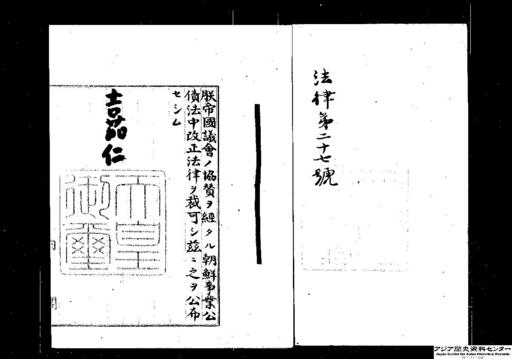 法律第二十七號
朕帝國議會ノ協賛ヲ經タル朝鮮事業公
債法中改正法律ヲ裁可シ茲ニ之ヲ公布
セシム
嘉仁
天皇
御璽
アジア歴史資料センター
Japan Center for Asian Historical Records